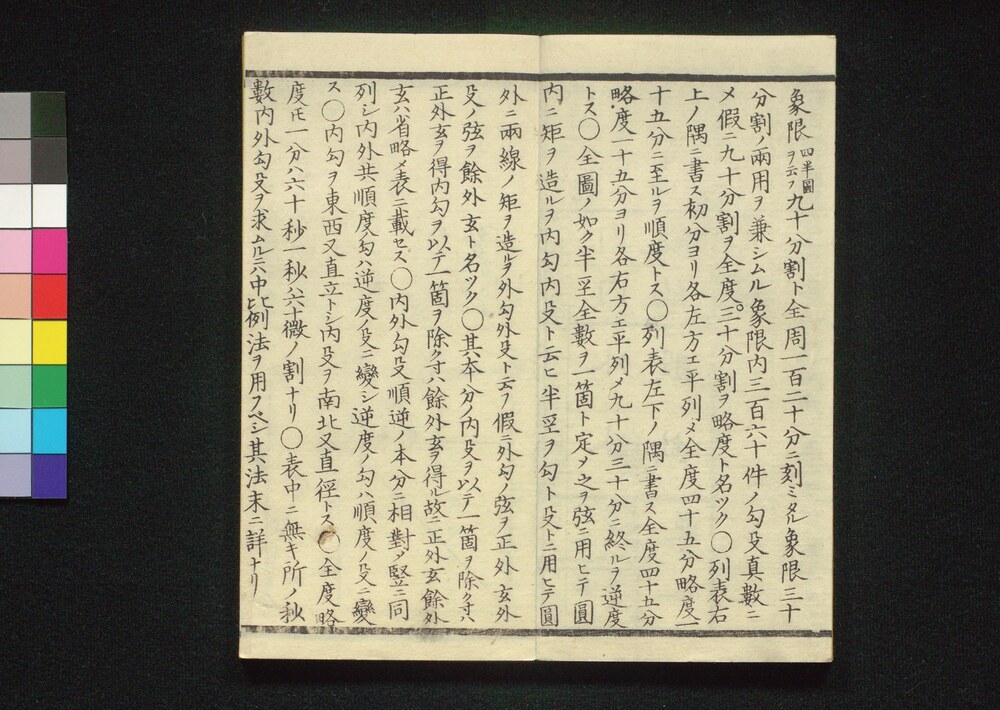 象限四半圖ヲ云フ九十分割ト全周一百二十分ニ刻ミタル象限三十
分割ノ兩用ヲ兼シムル象限内三百六十件ノ勾殳真數ニ
メ假ニ九十分割ヲ全度。三十分割ヲ略度ト名ツク〇列表右
上ノ隅ニ書ス初分ヨリ各左方エ平列メ全度四十五分略度一
十五分ニ至ルヲ順度トス〇列表左下ノ隅ニ書ス全度四十五分
略度一十五分ヨリ各右方エ平列メ九十分三十分ニ終ルヲ逆度
トス〇全圖ノ如ク半𢀖全數ヲ一箇ト定メ之ヲ弦ニ用ヒテ圓
内ニ矩ヲ造ルヲ内勾内殳ト云ヒ半𢀖ヲ勾ト殳トニ用ヒテ圓
外ニ兩線ノ矩ヲ造ルヲ外勾外殳ト云フ假ニ外勾ノ弦ヲ正外玄外
殳ノ弦ヲ餘外玄ト名ツク〇其本分ノ内殳ヲ以テ一箇ヲ除ク寸ハ
正外玄ヲ得内勾ヲ以テ一箇ヲ除ク寸ハ餘外玄ヲ得ル故ニ正外玄餘外
玄ハ省略メ表ニ載セス〇内外勾殳順逆ノ本分ニ相對メ竪ニ同
列シ内外共順度ノ勾ハ逆度ノ殳ニ變シ逆度ノ勾ハ順度ノ殳ニ變
ス〇内勾ヲ東西又直立トシ内殳ヲ南北又直徑トス〇全度略
度𪜈一分ハ六十秒一秒ハ六十微ノ割ナリ〇表中ニ無キ所ノ秋
數内外勾殳ヲ求ムルニハ中比例法ヲ用フベシ其法末ニ詳ナリ